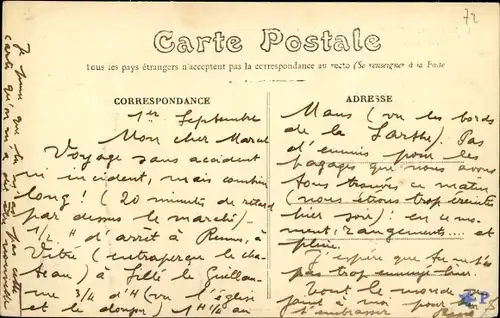 72
Carte Postale
Tous les pays étrangers n'acceptent pas la correspondance au recto (Se renseigner à la Poste
CORRESPONDANCE
1er Septembre
Mon cher Marcel
Voyage sans accident
ni incident, mais combien
long! (20 minutes de retard
par dessus le marché) -
1/2 H d'arrêt à Rennes, à
Vitré (entraperçu le châ-
teau) à Sillé le Guillau-
me 3/4 d'H (vu l'église
et le donjon) 1H au
ADRESSE
Mans (vu les bords
de la Sarthe). Pas
d'ennuis pour les
bagages que nous avons
tous trouvés ce matin
(nous étions trop éreintés
hier soir): en ce mo-
ment: rangements.... et
pluie.
J'espère que tu ne t'es
pas trop ennuyé hier.
Tout le monde se
joint à moi pour
t'embrasser
Je pense que
carte qu'on m'a dit
P